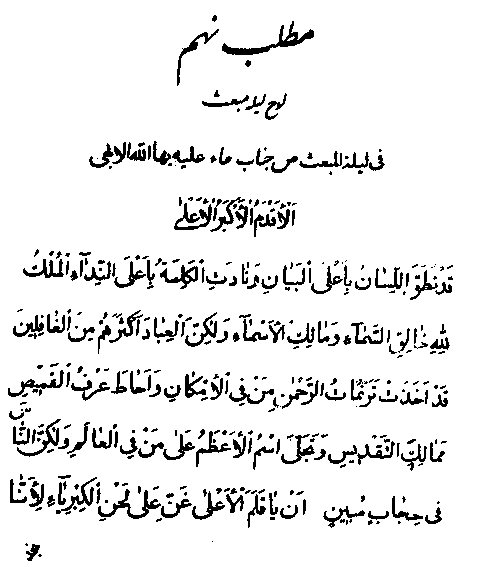 مطلب نهم
لوح لیله مبعث
فی لیلة المبعث من جناب ماء علیه بهاء الله الابهی
اَلْأَقْدَمُ الْأَكْبَرُ الْأَعْلىٰ
قَدْ نَطَقَ اللِّسَانُ بِأَعْلَى الْبَيَانِ وَنَادَتِ الْكَلِمَةُ بِأَعْلَى النِّدَآءِ الْمُلْكُ
لِلّٰهِ خَالِقِ السَّمَاءِ وَمَالِكِ الْأَسْمَاءِ وَلٰكِنَّ الْعِبَادَ أَكْثَرُهُمْ مِنَ الْغَافِلِينَ
قَدْ أَخَذَتْ تَرَنُّمَاتُ الرَّحْمٰنِ مَنْ فِي الْإِمْكَانِ وَأَحَاطَ عَرْفُ الْقَمِيصِ
مَمَالِكَ التَّقْدِيسِ وَتَجَلَّى اسْمُ الْأَعْظَمُ عَلَى مَنْ فِي الْعَالَمِ وَلٰكِنَّ النَّاسَ
فِي حِجَابٍ مُبِينٍ أَنْ يَا قَلَمَ الْأَعْلَى غَنِّ عَلَى لَحْنِ الْكِبْرِيَآءِ لِأَنَّا